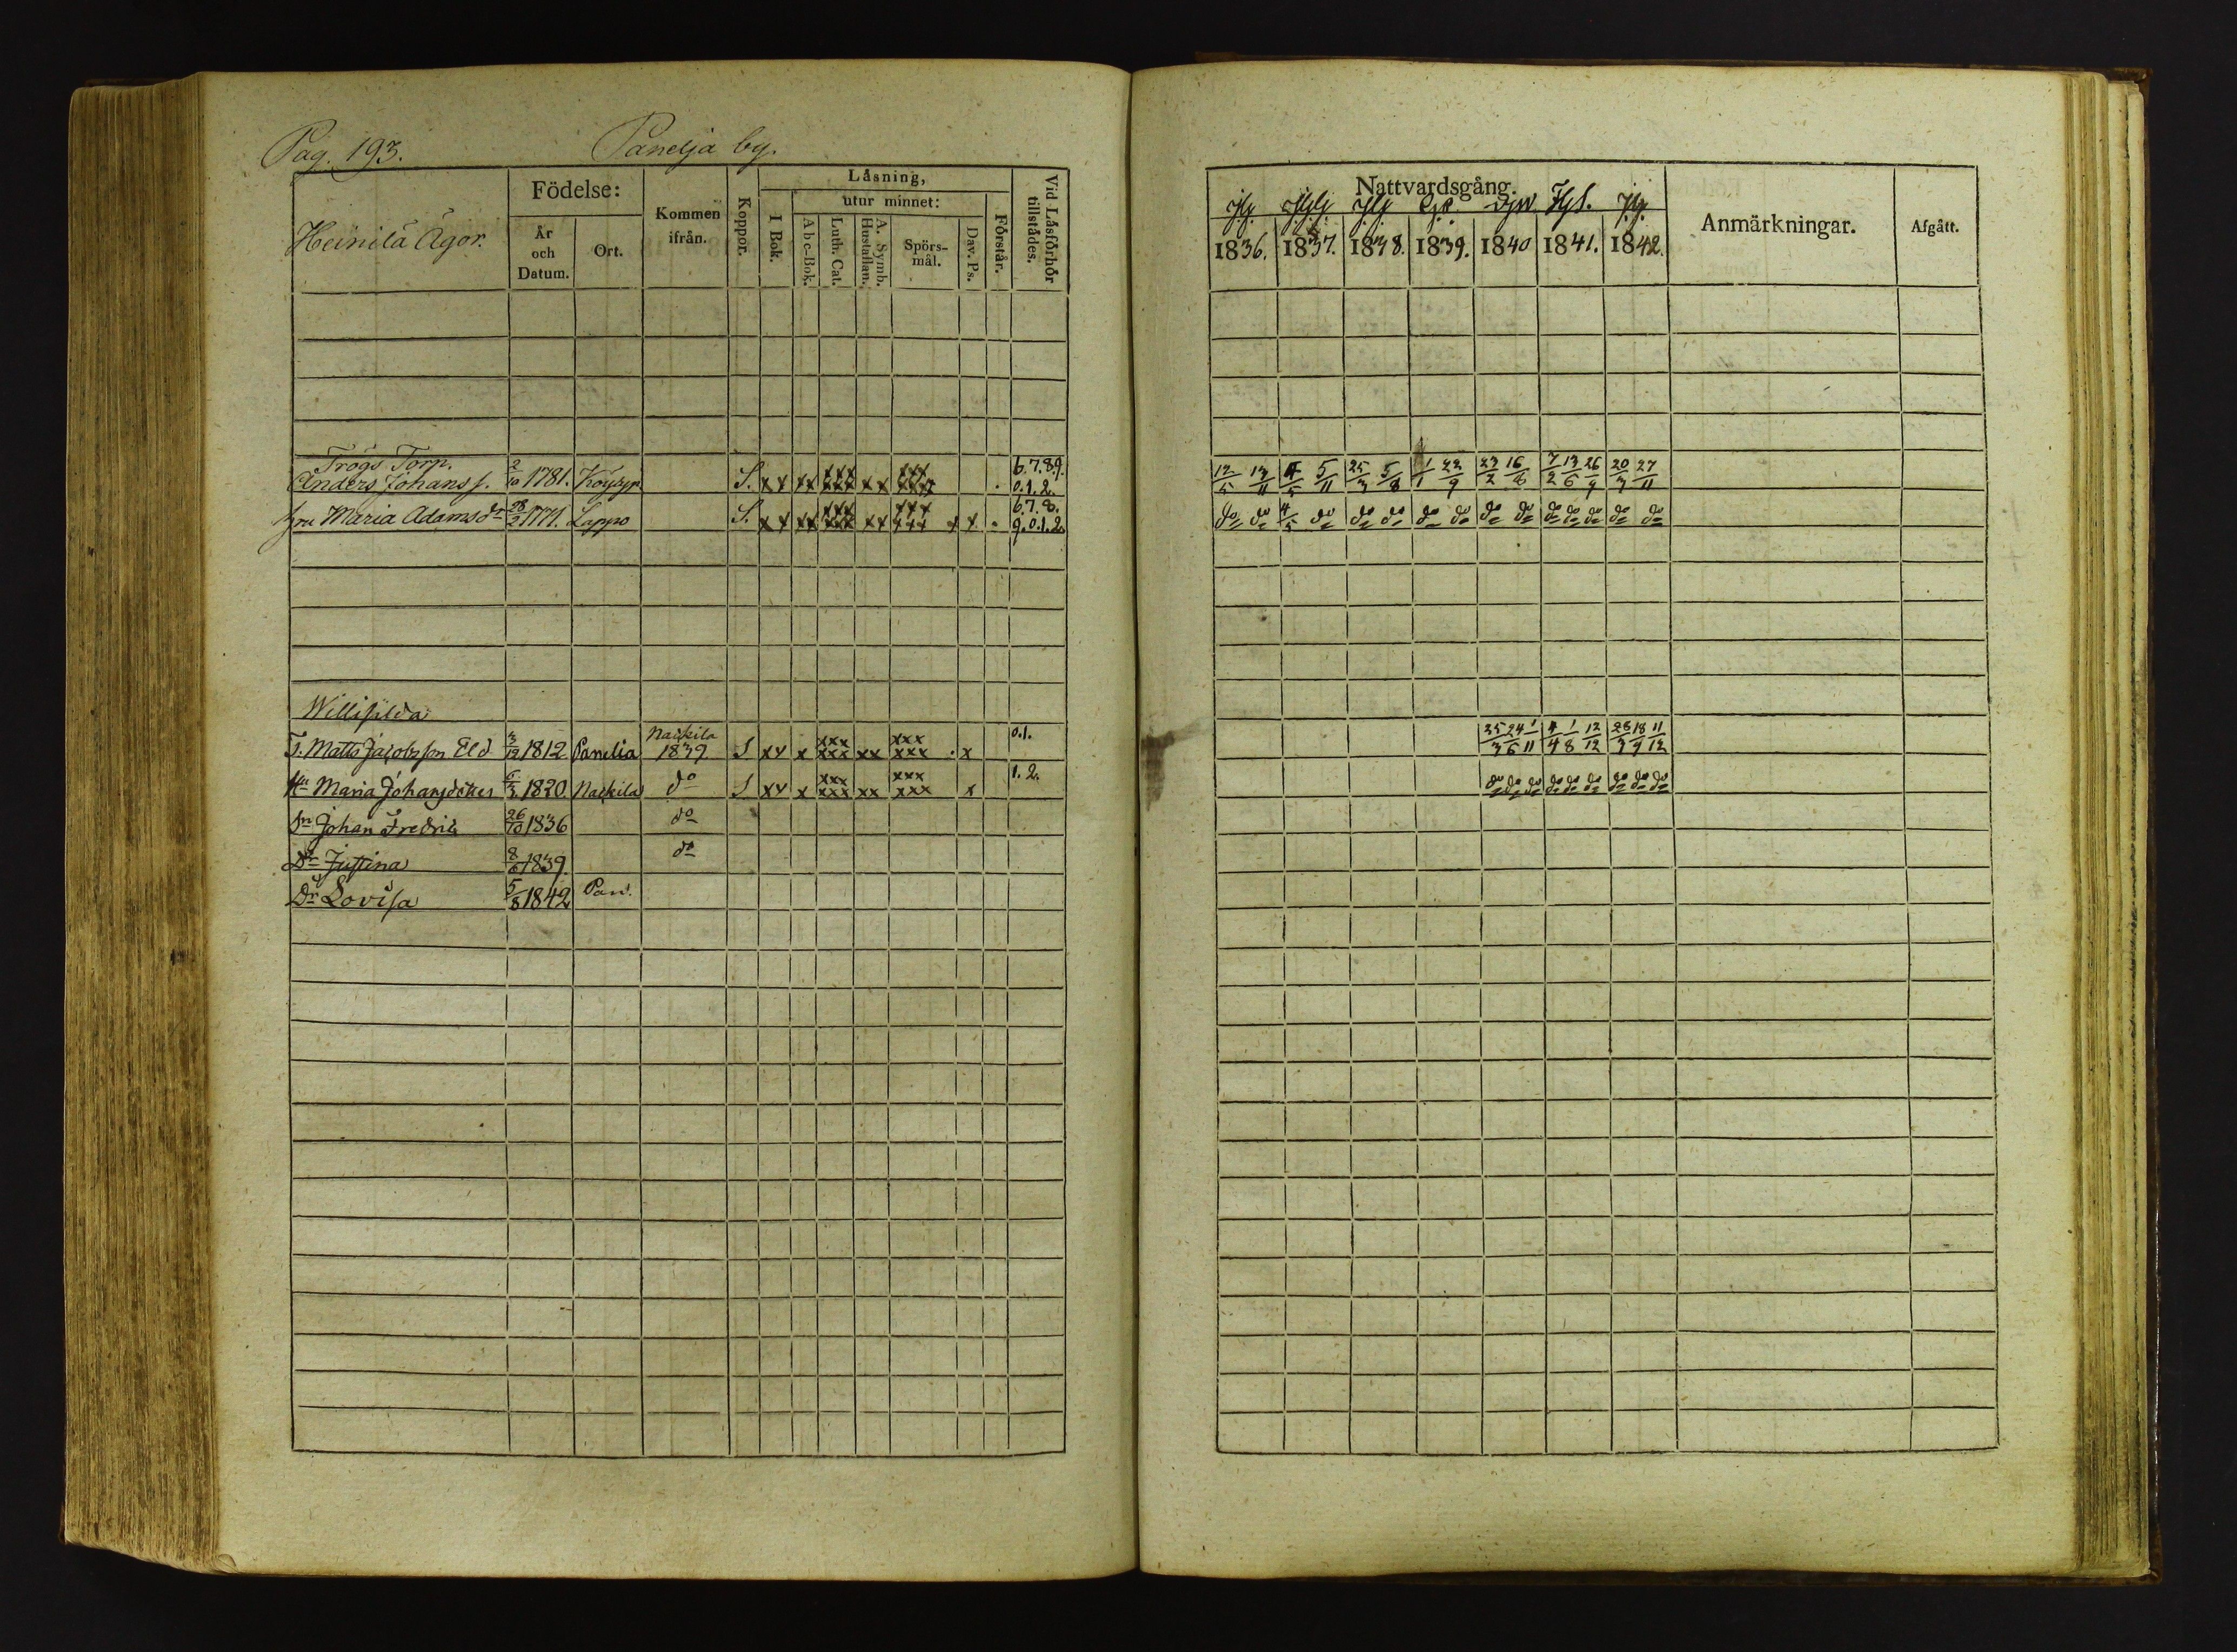 Pag. 193. Panelja by.
Heinilä Ägor.
Födelse:
År och Datum.
Ort.
Kommen ifrån.
Koppor.
Låsning,
I Bok.
utur minnet:
Abc-Bok.
Luth. Cat.
A. Symb. Hustaflan.
Spörs-mål.
Dav. Ps.
Förstår.
Vid Låsförhör tillstådes.
Trögs Torp. 6.7.8.9.
Anders Johans s. 2/10 1781. S. x x xx xxx xxx x x xxx xxx . 0.1.2.
Maria Adams dr 28/2 1771. Lappo S. x x xx xxx xxx xx xxx xxx x x . 6.7.8. 9.0.1.2.
T. Matts Jacobsson Eld 3/12 1812 Panelia Nackila 1839 S xx x xxx xxx xx xxx xxx . x 0.1.
Hu Maria Johansdotter 6/3 1820 Nackila do S xx x xxx xxx xx xxx xxx x 1.2.
Sn Johan Fredrik 26/10 1836 do
Dr Justina 8/6 1839. do
Dr Lovisa 5/8 1842 Pan.
Nattvardsgång.
1836. 1837. 1838. 1839. 1840 1841. 1842.
Anmärkningar.
Afgått.
12/5 13/11 4/5 5/11 25/3 5/8 1/1 22/9 23/2 16/8 7/2 13/6 26/9 20/3 27/11
do do 4/5 do do do do do do do do do do do do
25/3 24/6 1/11 4/4 1/8 12/12 28/3 18/9 11/12
do do do do do do do do do